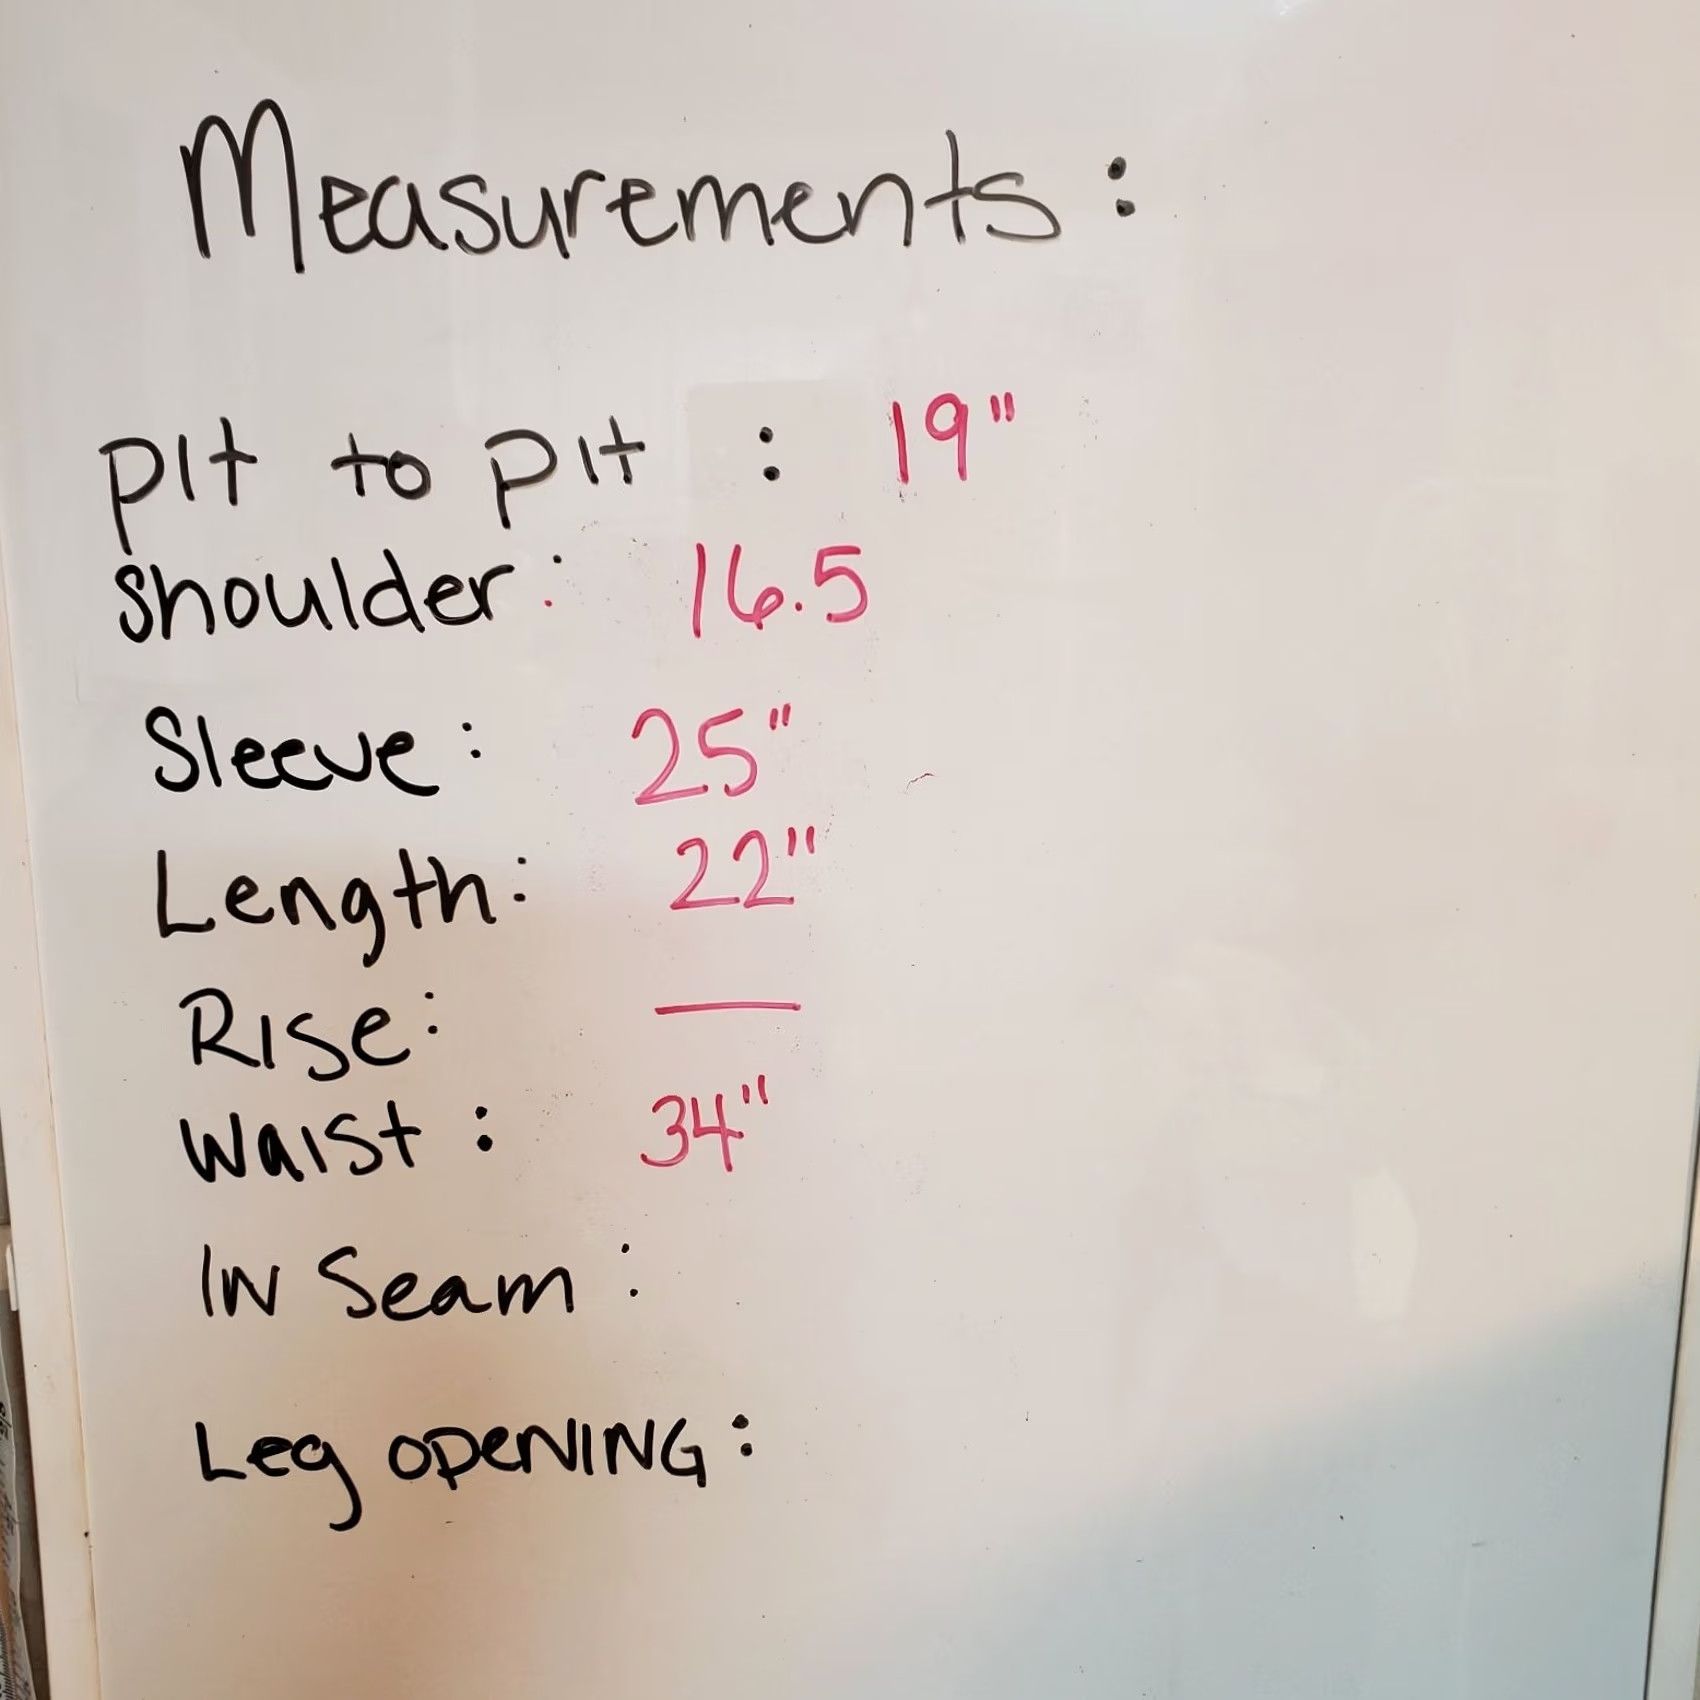 Measurements:
pit to pit : 19"
shoulder: 16.5
Sleeve: 25"
Length: 22"
Rise: —
Waist: 34"
IN Seam:
Leg OPENING: